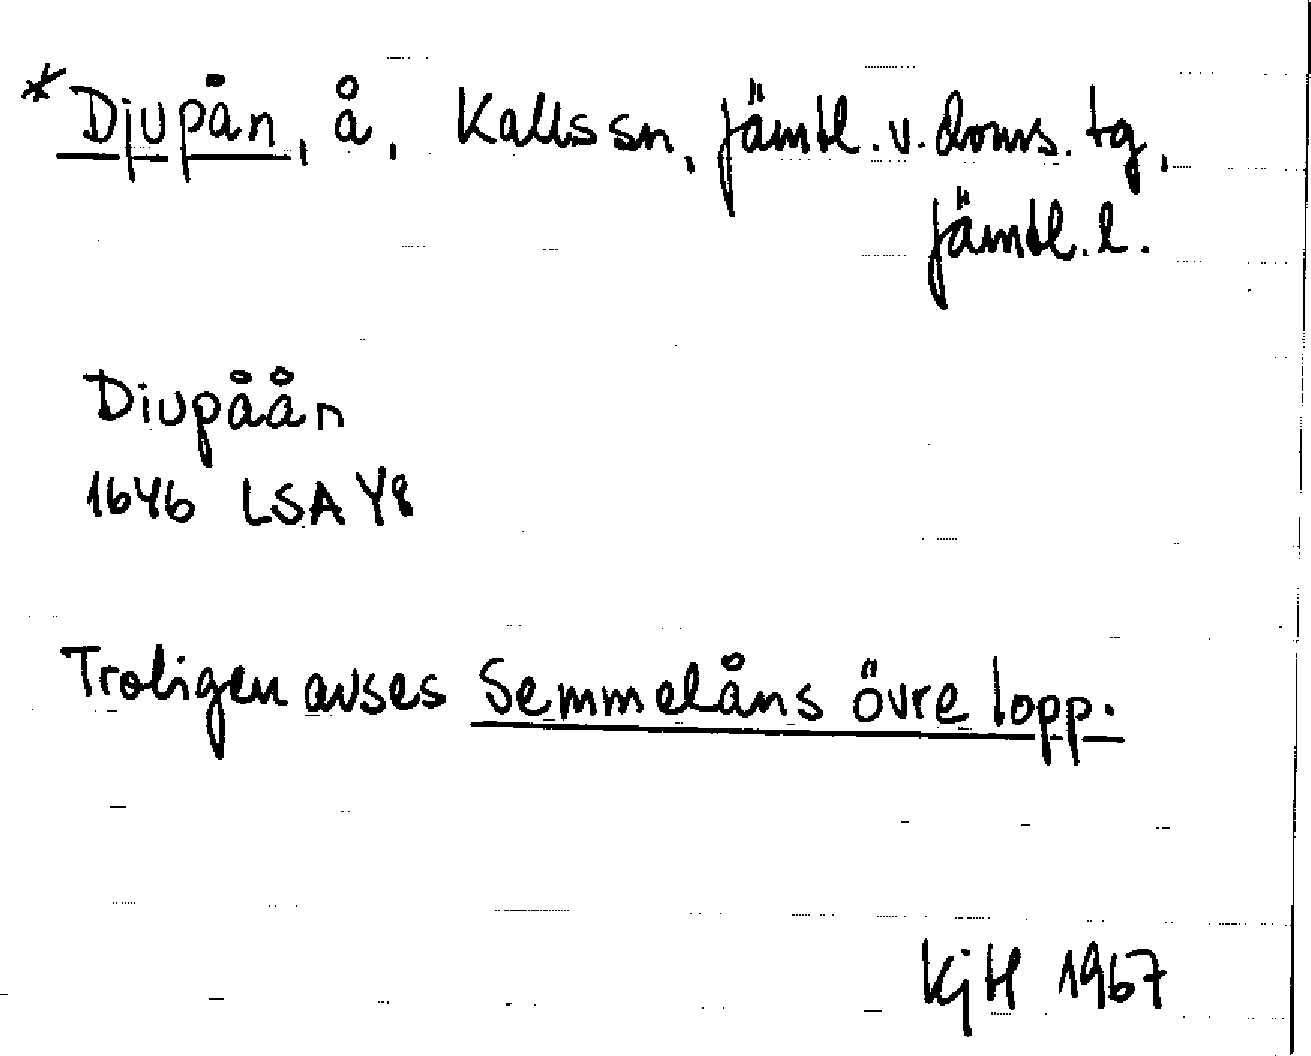 *Djupån, å, Kalls sn, Jämtl. v. doms. tg,
Jämtl. l.
Diupåån
1646 LSA Y8
Troligen avses Semmelåns övre lopp.
KjH 1967